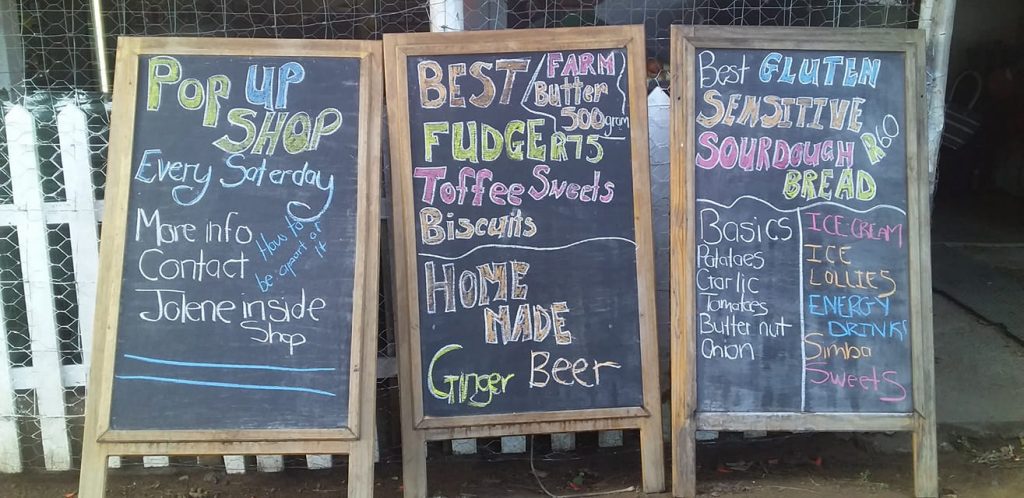 POP UP
SHOP
Every Saterday
More info
Contact
Jolene inside
Shop
How to
be apart of
it
BEST
FARM
Butter
500gram
FUDGE R75
Toffee Sweets
Biscuits
HOME
MADE
Ginger Beer
Best GLUTEN
SENSITIVE
SOURDOUGH
R60
BREAD
Basics
Potatoes
Garlic
Tomatoes
Butternut
Onion
ICE-CREAM
ICE
LOLLIES
ENERGY
DRINKS
Simba
Sweets